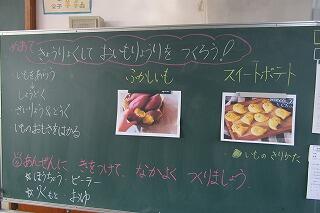 めあて きょうりょくして おいもりょうりを つくろう！
ふかしいも
スイートポテト
いもをあらう
↓
しょうどく
ざいりょう&どうぐ
いものおもさをはかる
いものきりかた
◎あんぜんに きをつけて、なかよく つくりましょう。
☆ほうちょう・ピーラー
☆火もと・おゆ